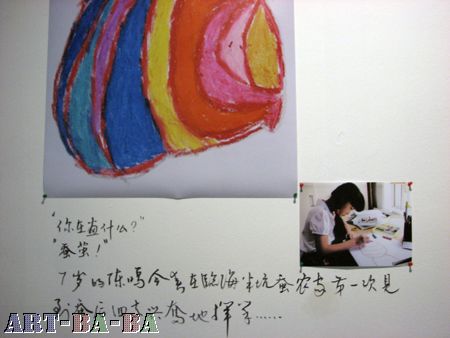 "你在画什么?"
"蚕茧!"
7岁的陈鸣今年在临海半坑蚕农家第一次见
到蚕后，兴奋地挥笔......
ART-BA-BA